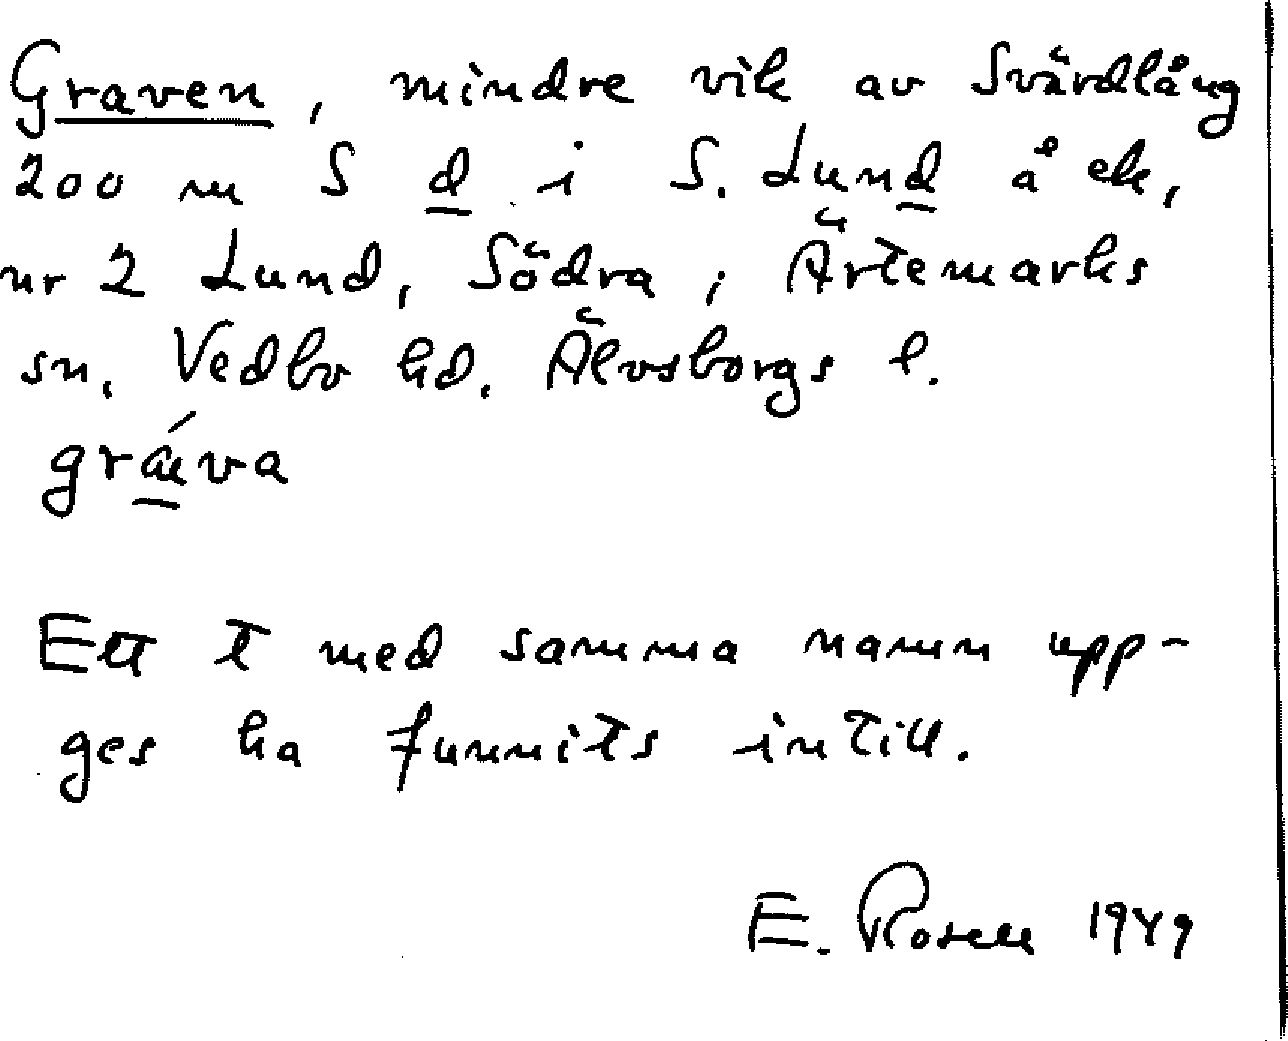 Graven, mindre vik av Svärdlång
200 m S d i S. Lund å ek,
nr 2 Lund, Södra, i Ärtemarks
sn, Vedbo hd. Älvsborgs l.
grá̱va
Ett t med samma namn upp-
ges ha funnits intill.
E. Rosell 1949